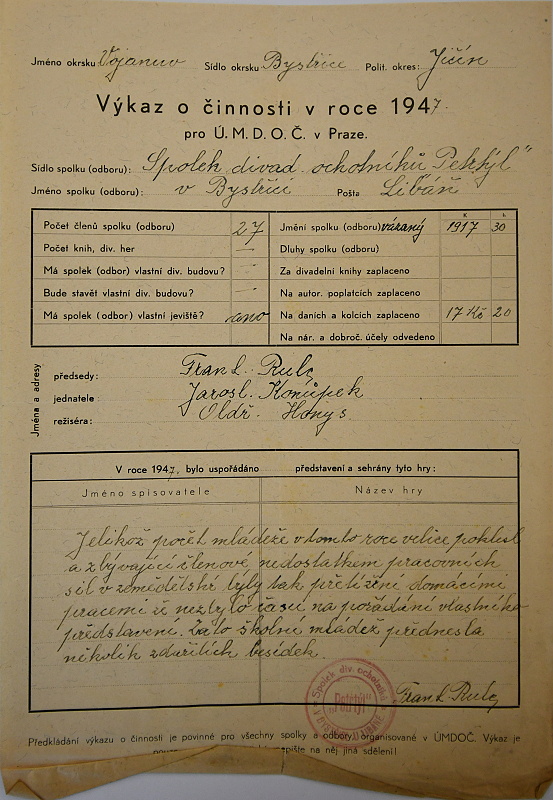 Jméno okrsku Vojanův Sídlo okrsku Bystřice Polit. okres: Jičín
Výkaz o činnosti v roce 1947.
pro Ú. M. D. O. Č. v Praze.
Sídlo spolku (odboru): Spolek divad. ochotníků
Jméno spolku (odboru): v Bystřici Pošta Libáň
Počet členů spolku (odboru) 27
Počet knih, div. her —
Má spolek (odbor) vlastní div. budovu? —
Bude stavět vlastní div. budovu? —
Má spolek (odbor) vlastní jeviště? ano
K h
Jmění spolku (odboru) vázaný 1917 30
Dluhy spolku (odboru)
Za divadelní knihy zaplaceno
Na autor. poplatcích zaplaceno
Na daních a kolcích zaplaceno 17 Kč 20
Na nár. a dobroč. účely odvedeno
Jména a adresy
předsedy: Frant. Rulc
jednatele Jarosl. Konůpek
režiséra: Oldř. Honys
V roce 1947, bylo uspořádáno představení a sehrány tyto hry:
Jméno spisovatele Název hry
Jelikož počet mládeže v tomto roce velice poklesl
a zbývající členové nedostatkem pracovních
sil v zemědělství byly tak přetížení domácími
pracemi že nezbylo času na pořádání vlastního
představení. Zato školní mládež přednesla
několik zdařilích besídek.
Spolek div. ochotníků
Frant. Rulc
Předkládání výkazu o činnosti je povinné pro všechny spolky a odbory, organisované v ÚMDOČ. Výkaz je
nepište na něj jiná sdělení!